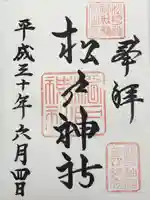 奉拝
松陰神社
平成三十年六月四日